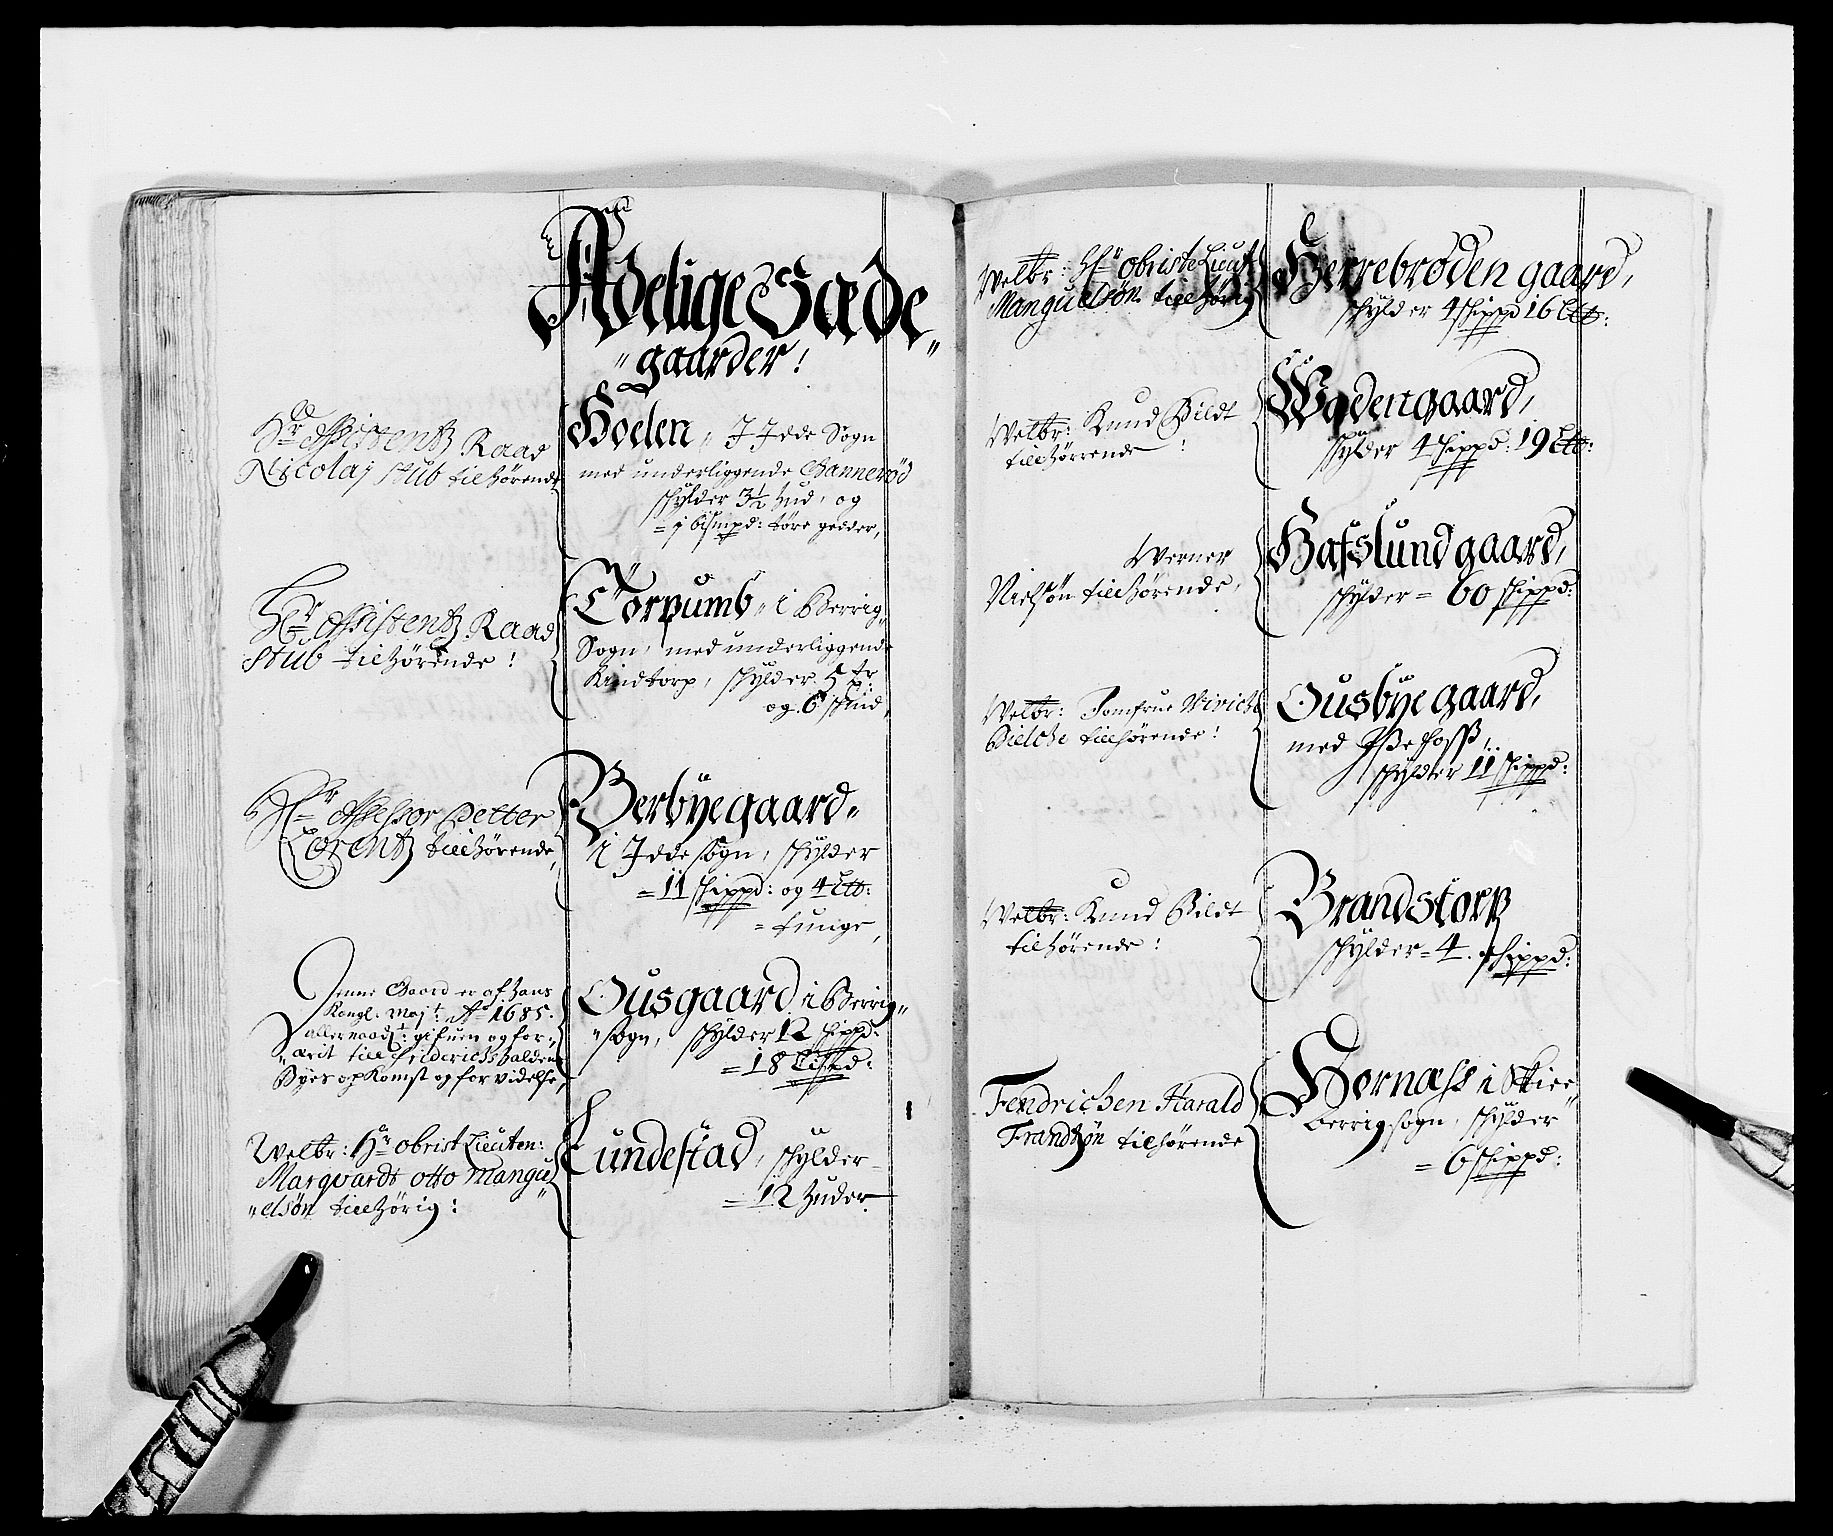 Adelige Sæde„
„gaarder!
Hr Assistentz Raad
Nicolaj Stub tilhørende
Hoelen, i Idde Sogn
med underliggende Gannerød
schylder 3½ hud, og
= 1 bismpd: tørre gedder,
Hr Assistentz Raad
Stub tilhørende!
Torpumb, i Berrig„
Sogn, med underliggende
Kindtorp, schylder 5 tr
og 6 skind,
Hr Assessor Petter
Lorentz tillhørende,
Berbyegaard„
i Idde sogn, schylder
= 11 schippd: og 4 Ltt:
= tunge,
Denne Gaard er af Hans
Kongl. Majt: Ao 1685.
allernaadt: gifuen og for„
„ærit till Friderichshaldens
Byes opkomst og forvidelse,
Ousgaard i Berrig„
„sogn, schylder 12 schippd:
= 18 Lispd:
Welbr: Hr Obrist Lieuten:
Marqvardt Otto Mangu
„elsøn tillhørig:
Lundestad, schylder
= 12 huder.
Welbr: Hr Obriste Lieut
Manguelsøn tillhørig
Herrebrøden gaard,
schylder 4 schippd 16 Ltt:
Welbr: Knud Bildt
tillhørrende!
Wodengaard,
schylder 4 schippd: 19 Ltt:
Werner
Nielsøn tillhørende,
Hafslund gaard,
schylder = 60 schippd:
Welbr: Jomfrue Wiviche
Bielche tillhørende!
Ousbye gaard,
med foss,
schylder 11 schippd:
Welbr: Knud Bildt
tilhørende!
Brandstorp
schylder = 4. schippd:
Fendrichen Harald
Frandtzøn tilhørende
Hornæss i Skiee„
berrig sogn, schylder
= 6 schippd: